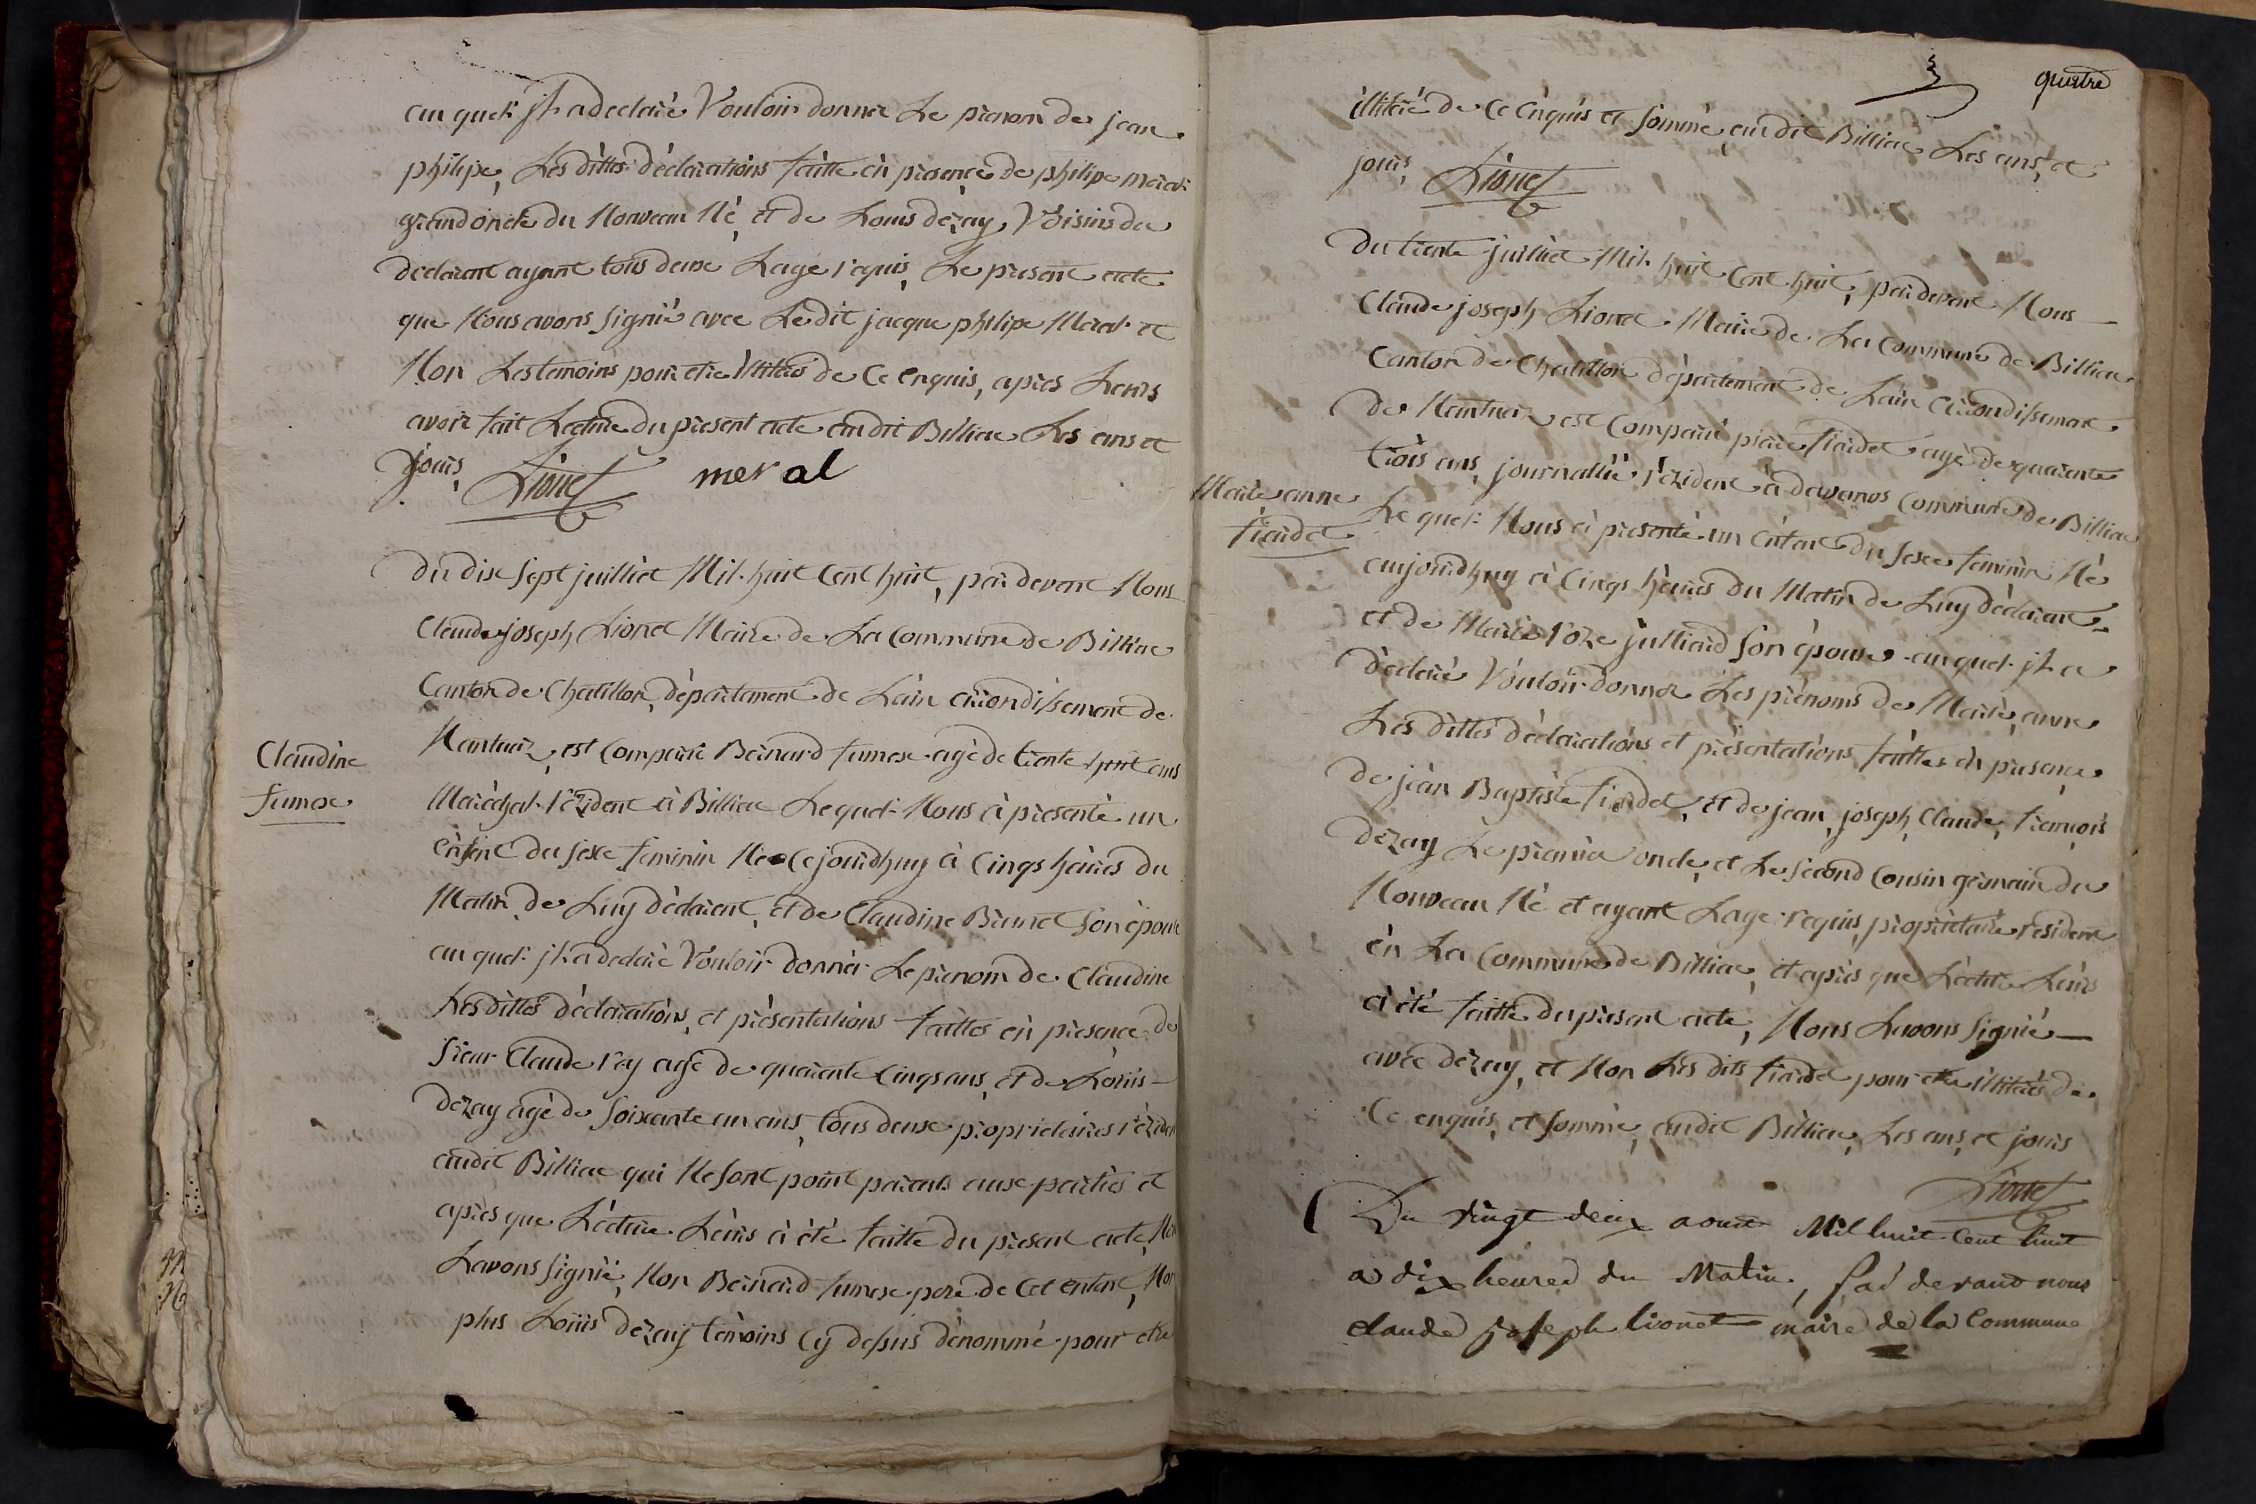 auquel jl a declaré Vouloir donner Le prenom de jean
philipe, Les dittes déclarations faitte én présence de philipe meral
grand oncle du Nouveau Né, et de Louis dézay, Voisins du
declarant ayant tous deux Lage réquis, Le present acte
que Nous avons Signié avec Ledit jacque philipe Meral et
Non Les temoins pour etre illitéré de Ce enquis, apres Leurs
avoir fait Lecture du present acte audit Billiac Les ans et
jours, Lionet meral
du dix Sept juilliet Mil huit Cent huit, par devant Nous
Claude joseph Lionet Maire de La Commune de Billiac
Canton de Chatillon, département de Lain arrondissement de
Nantuaz, est Comparu Bernard fumex agé de trente huit ans
Claudine
fumex
Maréchal rézident à Billiac Lequel Nous à presenté un
énfant du sexe feminin Né Cejourdhuy à Cinqs héures du
Matin, de Luy déclarant, et de Claudine Brunet Son épouse
auquel jl a declaré Vouloir donnér Le prenom de Claudine
Les dittes déclarations, et présentations faittes én présence de
Sieur Claude ray agé de quarente Cinqs ans, et de Loüis
dézay agé de Soixante un ans, tous deux propriétaires rézident
audit Billiac qui Ne sont point parents aux parties et
après que Lécture Léurs à été faitte du présent acte, Nous
Lavons Signié, Non Bernard fumex pere de Cet enfant, Non
plus Loüis dézay témoins Cy dessus dénommé pour etre
quatre
illitéré de Ce énquis et Sommé, audit Billiac Les ans, et
jours, Lionet
du trente juilliet Mil huit Cent huit, par devant Nous
Claude joseph Lionet Maire de La Commune de Billiac
Canton de Chatillon département de Lain arrondissement
de Nantuaz est Comparu piere firidet agé de quarente
trois ans, journallié rézident à davanos Commune de Billiac
Marie anne
firidet
Lequel Nous à présenté un énfant du sexe feminin Né
aujourdhuy à Cinqs héures du Matin de Luy déclarant
et de Marie roze julliard Son épouse auquel jl a
déclaré Vouloir donner Les prénoms de Marie, anne
Les dittes déclarations et présentations, faittes én présence
de jéan Baptiste firidet, et de jean, joseph, Claude, françois
dézay Le premier oncle, et Le second Cousin germain du
Nouveau Né et ayant Lage requis, propriétaire résident
én La Commune de Billiac, et après que Lécture Leurs
à été faitte du présent acte, Nous Lavons Signié
avéc dézay, et Non Les dits firidet pour etre illitérés de
Ce enquis, et Sommé, audit Billiac, Les ans, et jours
Lionet
Du vingt deux aoust Mil huit Cent huit
a dix heures du Matin, par devant nous
claude joseph lionet maire de la Commune